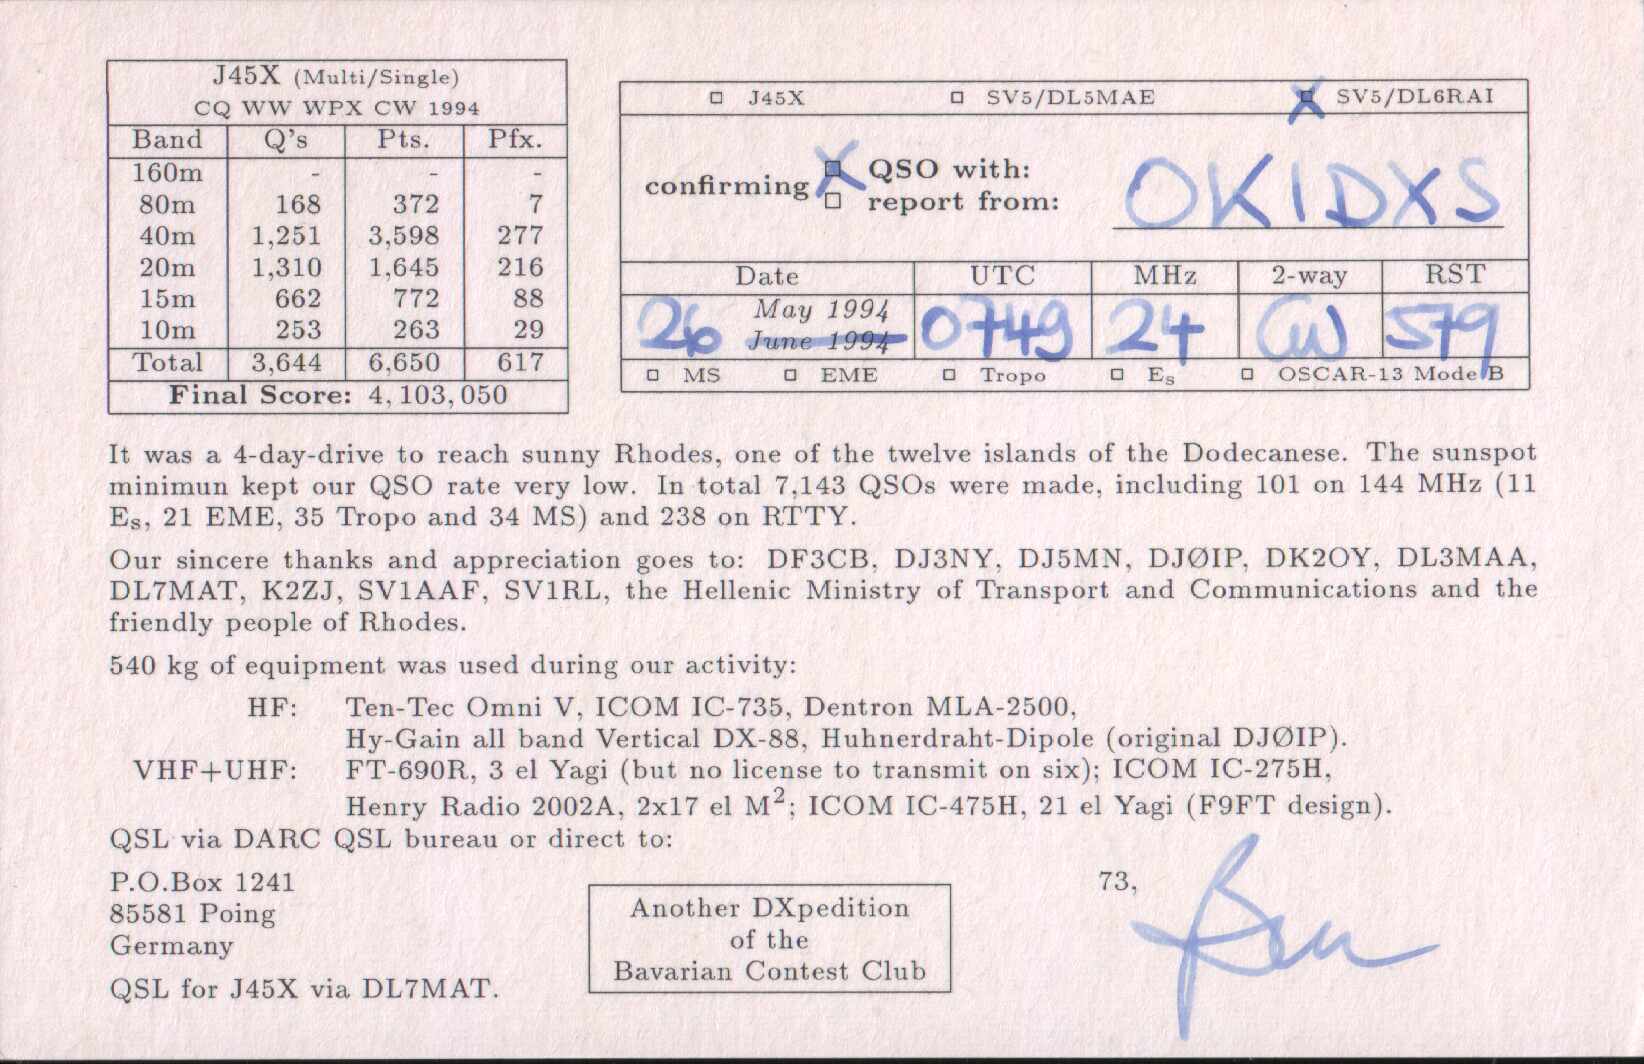 J45X (Multi/Single)
CQ WW WPX CW 1994
Band Q's Pts. Pfx.
160m - - -
80m 168 372 7
40m 1,251 3,598 277
20m 1,310 1,645 216
15m 662 772 88
10m 253 263 29
Total 3,644 6,650 617
Final Score: 4,103,050
□ J45X □ SV5/DL5MAE ☒ SV5/DL6RAI
confirming ☒ QSO with: OK1DXS
□ report from:
Date UTC MHz 2-way RST
26 May 1994 0749 24 CW 579
June 1994
□ MS □ EME □ Tropo □ Es □ OSCAR-13 Mode B
It was a 4-day-drive to reach sunny Rhodes, one of the twelve islands of the Dodecanese. The sunspot
minimun kept our QSO rate very low. In total 7,143 QSOs were made, including 101 on 144 MHz (11
Es, 21 EME, 35 Tropo and 34 MS) and 238 on RTTY.
Our sincere thanks and appreciation goes to: DF3CB, DJ3NY, DJ5MN, DJØIP, DK2OY, DL3MAA,
DL7MAT, K2ZJ, SV1AAF, SV1RL, the Hellenic Ministry of Transport and Communications and the
friendly people of Rhodes.
540 kg of equipment was used during our activity:
HF: Ten-Tec Omni V, ICOM IC-735, Dentron MLA-2500,
Hy-Gain all band Vertical DX-88, Huhnerdraht-Dipole (original DJØIP).
VHF+UHF: FT-690R, 3 el Yagi (but no license to transmit on six); ICOM IC-275H,
Henry Radio 2002A, 2x17 el M²; ICOM IC-475H, 21 el Yagi (F9FT design).
QSL via DARC QSL bureau or direct to:
P.O.Box 1241
85581 Poing
Germany
QSL for J45X via DL7MAT.
Another DXpedition
of the
Bavarian Contest Club
73,
Ben